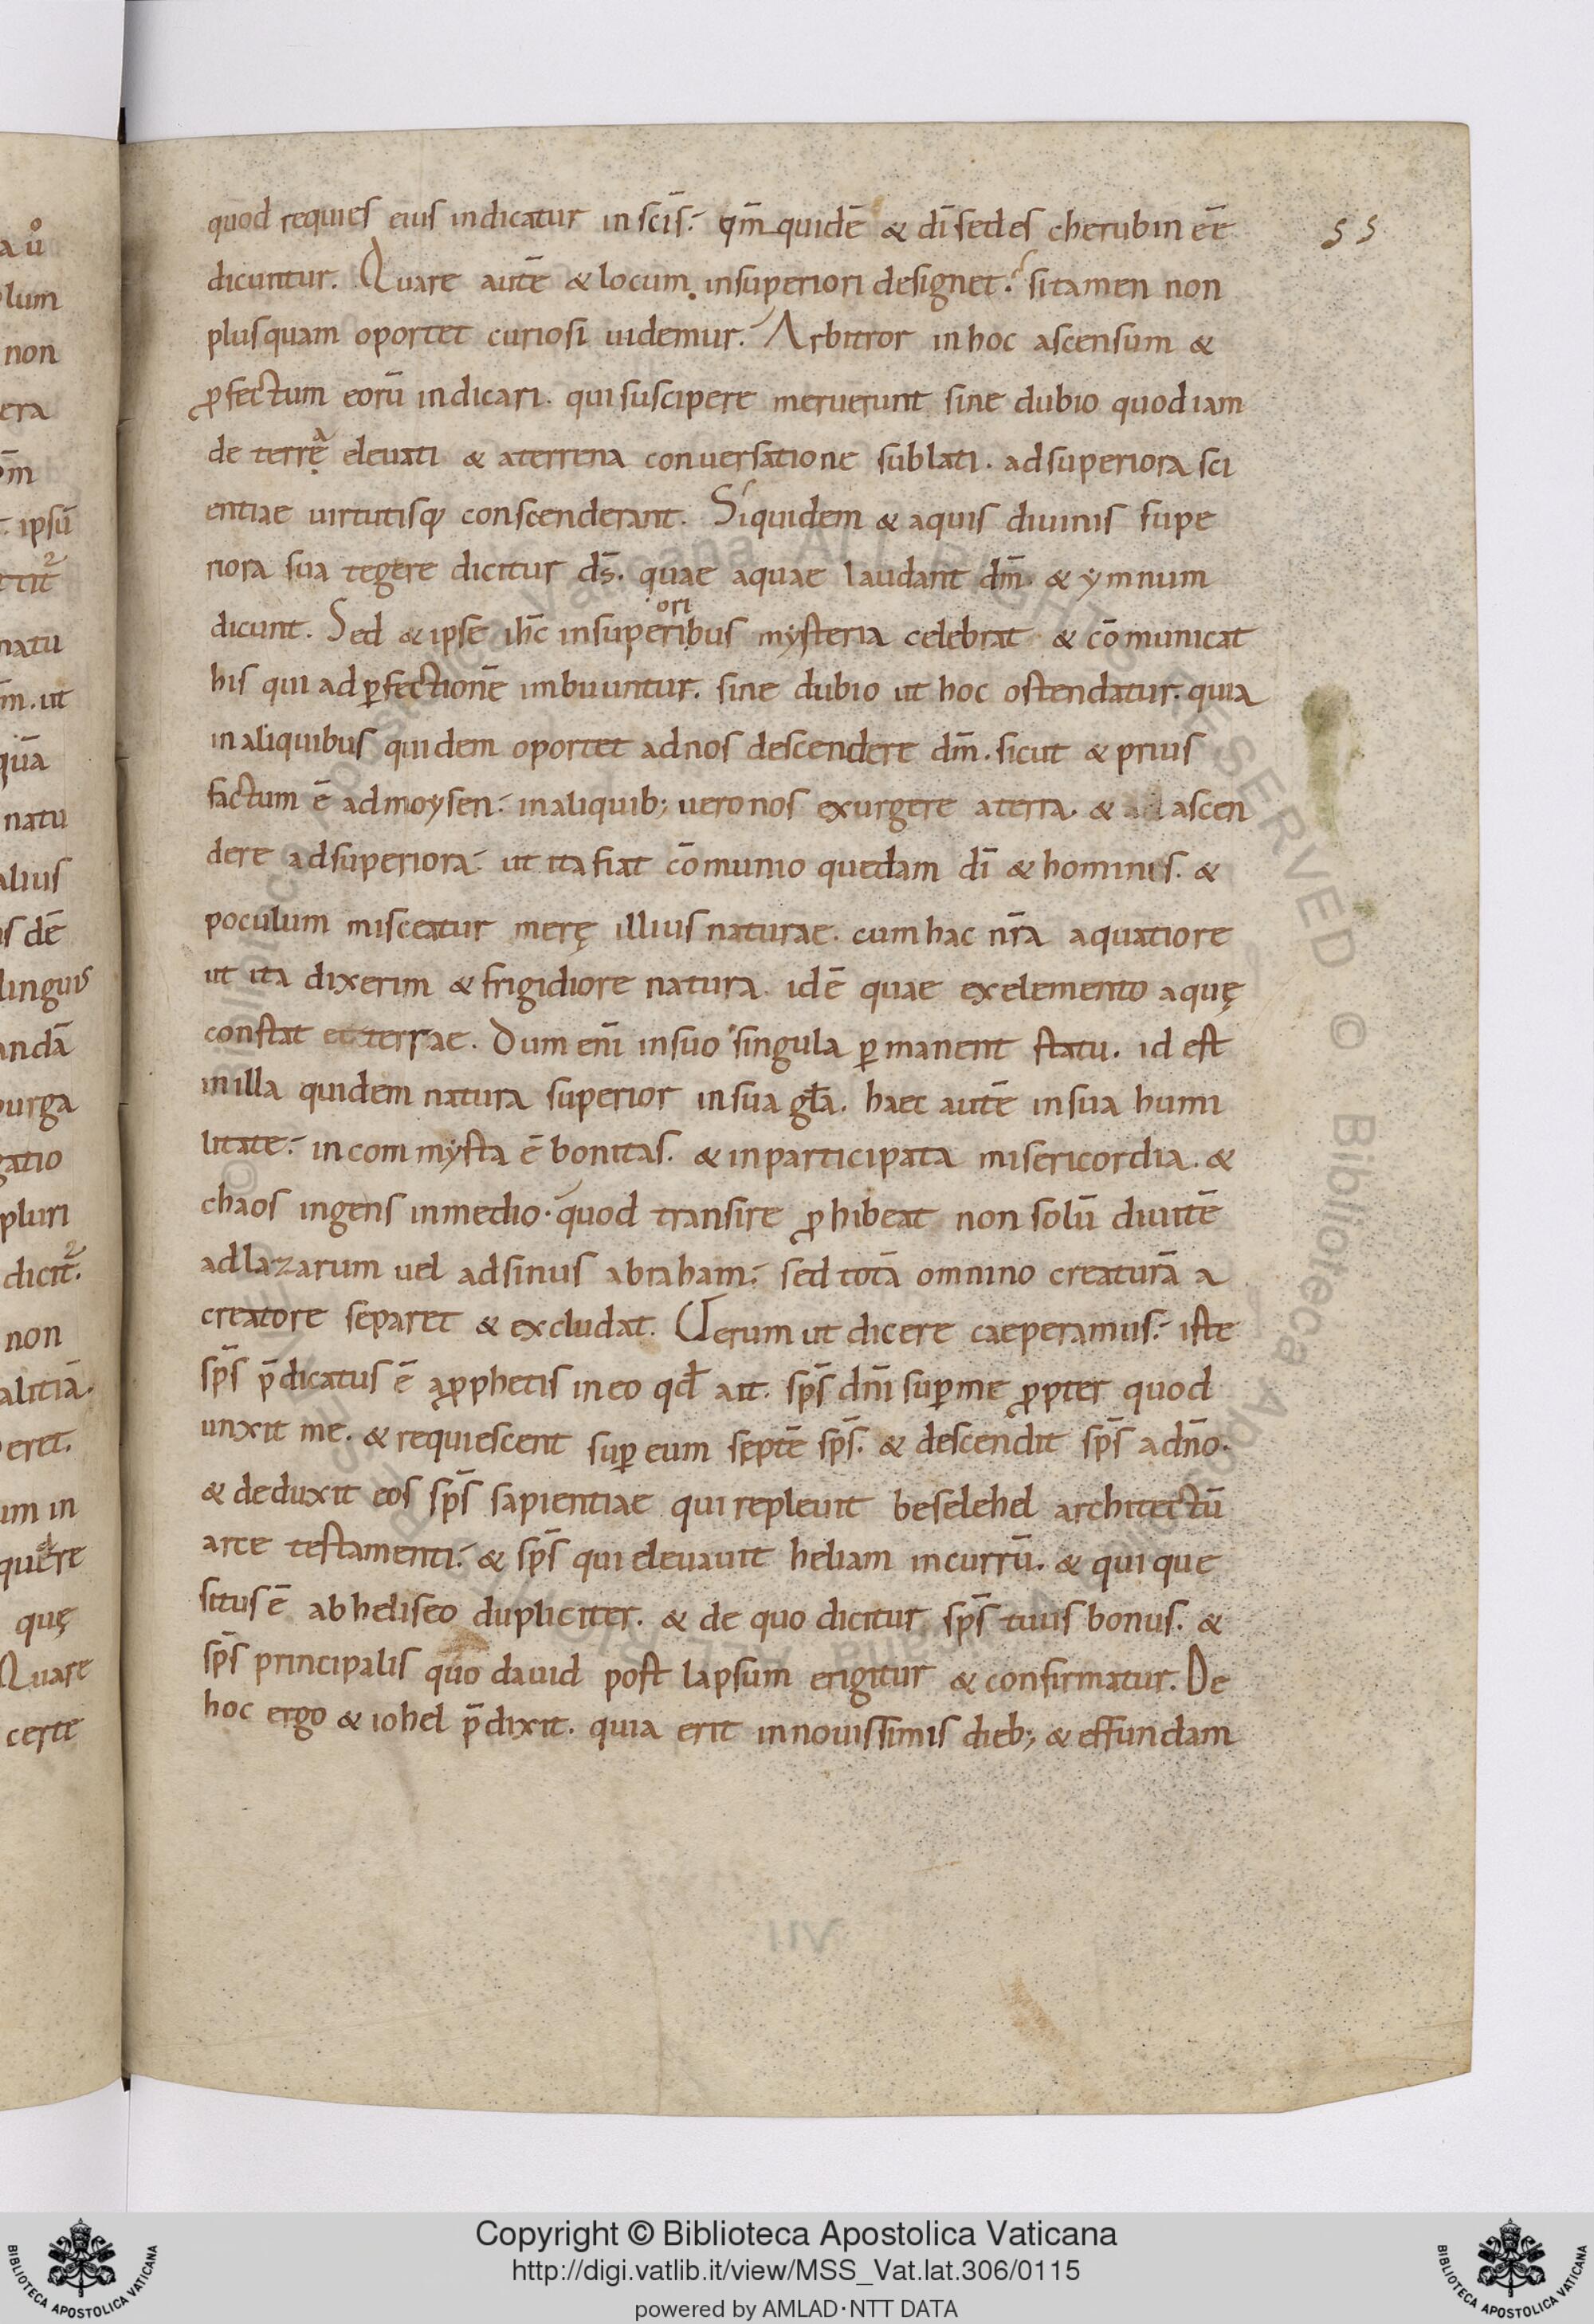 quod requies eius indicatur in scīs. qm̄ quidē & dī sedes cherubin eē
dicuntur. Quare autē & locum insuperiori designet. si tamen non
plusquam oportet curiosi uidemur. Arbitror in hoc ascensum &
ꝓfectum eorū indicari. qui suscipere meruerunt sine dubio quod iam
de terrę eleuati & aterrena conuersatione sublati. ad superiora sci
entiae uirtutisq; conscenderant. Siquidem & aquis diuinis supe
riora sua tegere dicitur dś. quae aquae laudant dm̄. & ymnum
dicunt. Sed & ipse ih̄c insuperioribus mysteria celebrat & cōmunicat
his qui ad ꝑfectionē imbuuntur. sine dubio ut hoc ostendatur. quia
in aliquibus quidem oportet ad nos descendere dm̄. sicut & prius
factum ē ad moysen. in aliquib; uero nos exurgere a terra. & ascen
dere ad superiora. ut ita fiat cōmunio quedam dī & hominis. &
poculum misceatur merę illius naturae. cum hac nr̄a aquatiore
ut ita dixerim & frigidiore natura. idē quae ex elemento aquę
constat et terrae. Dum enī in suo singula ꝑmanent statu. id est
in illa quidem natura superior in sua gła. haec autē in sua humi
litate. in commysta ē bonitas. & in participata misericordia. &
chaos ingens in medio. quod transire ꝓhibeat non solū diuitē
ad lazarum uel ad sinus abraham. sed totā omnino creaturā a
creatore separet & excludat. Uerum ut dicere caeperamus. iste
sp̄s p̄dicatus ē a ꝓphetis in eo qđ ait. sp̄s dn̄i suꝑ me ꝓpter quod
unxit me. & requiescent suꝑ eum septē sp̄s. & descendit sp̄s a dn̄o.
& deduxit eos sp̄s sapientiae qui repleuit beselehel architectū
arce testamenti. & sp̄s qui eleuauit heliam in currū. & qui que
situs ē ab heliseo dupliciter. & de quo dicitur sp̄s tuus bonus. &
sp̄s principalis quo dauid post lapsum erigitur & confirmatur. De
hoc ergo & iohel p̄dixit. quia erit in nouissimis dieb; & effundam
55
VII
a uº
lum
non
era
ipsū
natu
m̄. ut
quā
natu
alius
s dē
linguis
andā
purga
gatio
pluri
non
alitiā.
eret.
um in
quę
Quare
certe
Copyright © Biblioteca Apostolica Vaticana
http://digi.vatlib.it/view/MSS_Vat.lat.306/0115
powered by AMLAD·NTT DATA
BIBLIOTECA APOSTOLICA VATICANA
BIBLIOTECA APOSTOLICA VATICANA